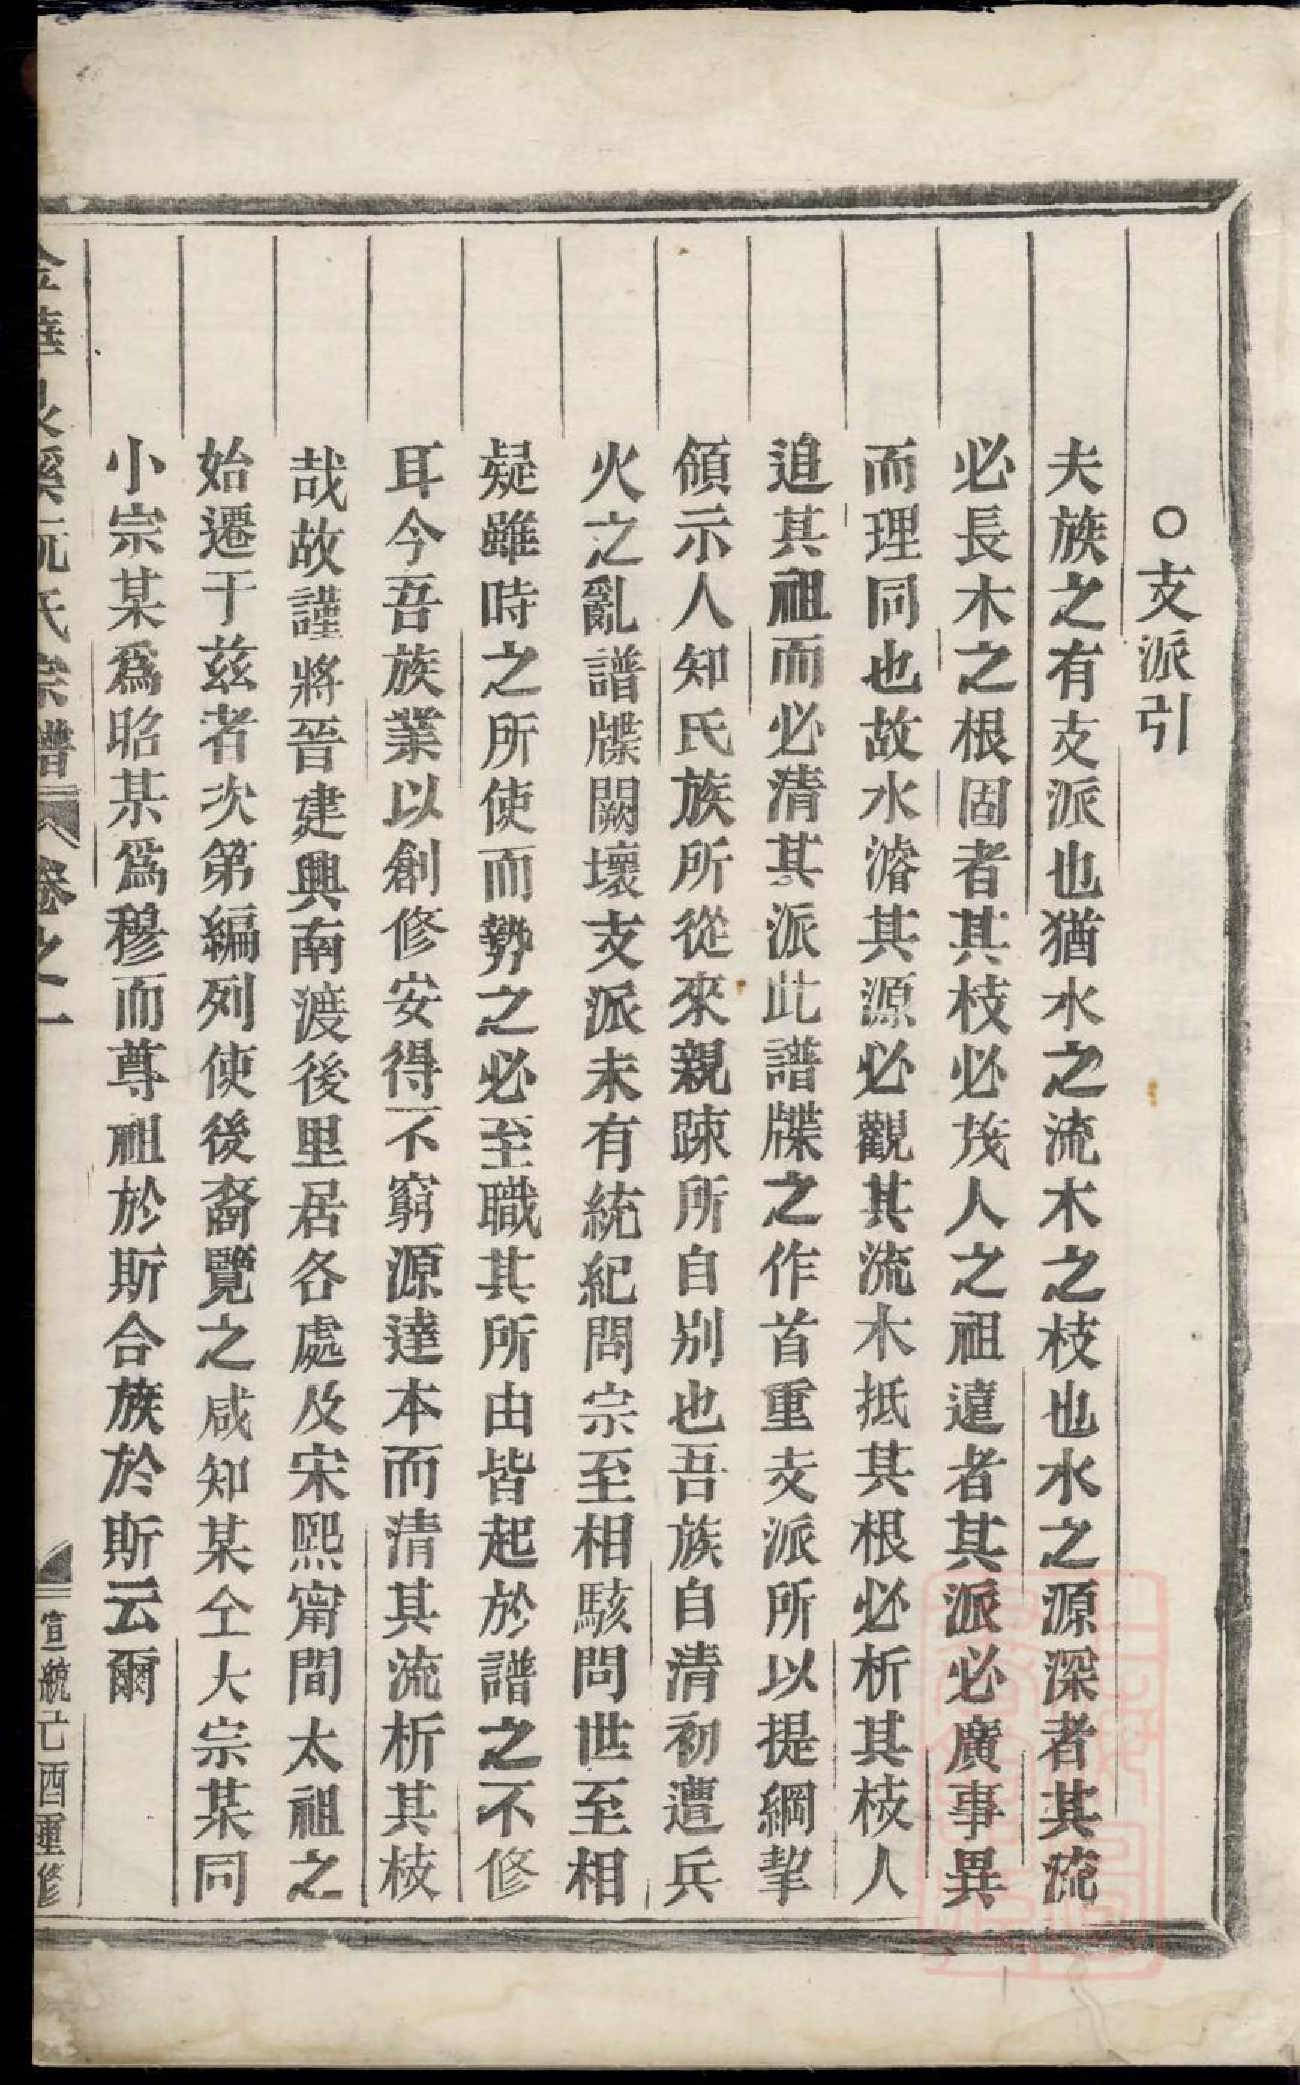 ○支派引
夫族之有支派也猶水之流木之枝也水之源深者其流
必長木之根固者其枝必茂人之祖遠者其派必廣事異
而理同也故水濬其源必觀其流木抵其根必析其枝人
追其祖而必清其派此譜牒之作首重支派所以提綱挈
領示人知氏族所從來親疎所自别也吾族自清初遭兵
火之亂譜牒闕壞支派未有統紀問宗至相駭問世至相
疑雖時之所使而勢之必至職其所由皆起於譜之不修
耳今吾族業以創修安得不窮源達本而清其流析其枝
哉故謹將晉建興南渡後里居各處及宋熙甯間太祖之
始遷于茲者次第編列使後裔覽之咸知某仝大宗某同
小宗某爲昭某爲穆而尊祖於斯合族於斯云爾
金華 溪阮氏宗譜 卷之一 宣統己酉重修